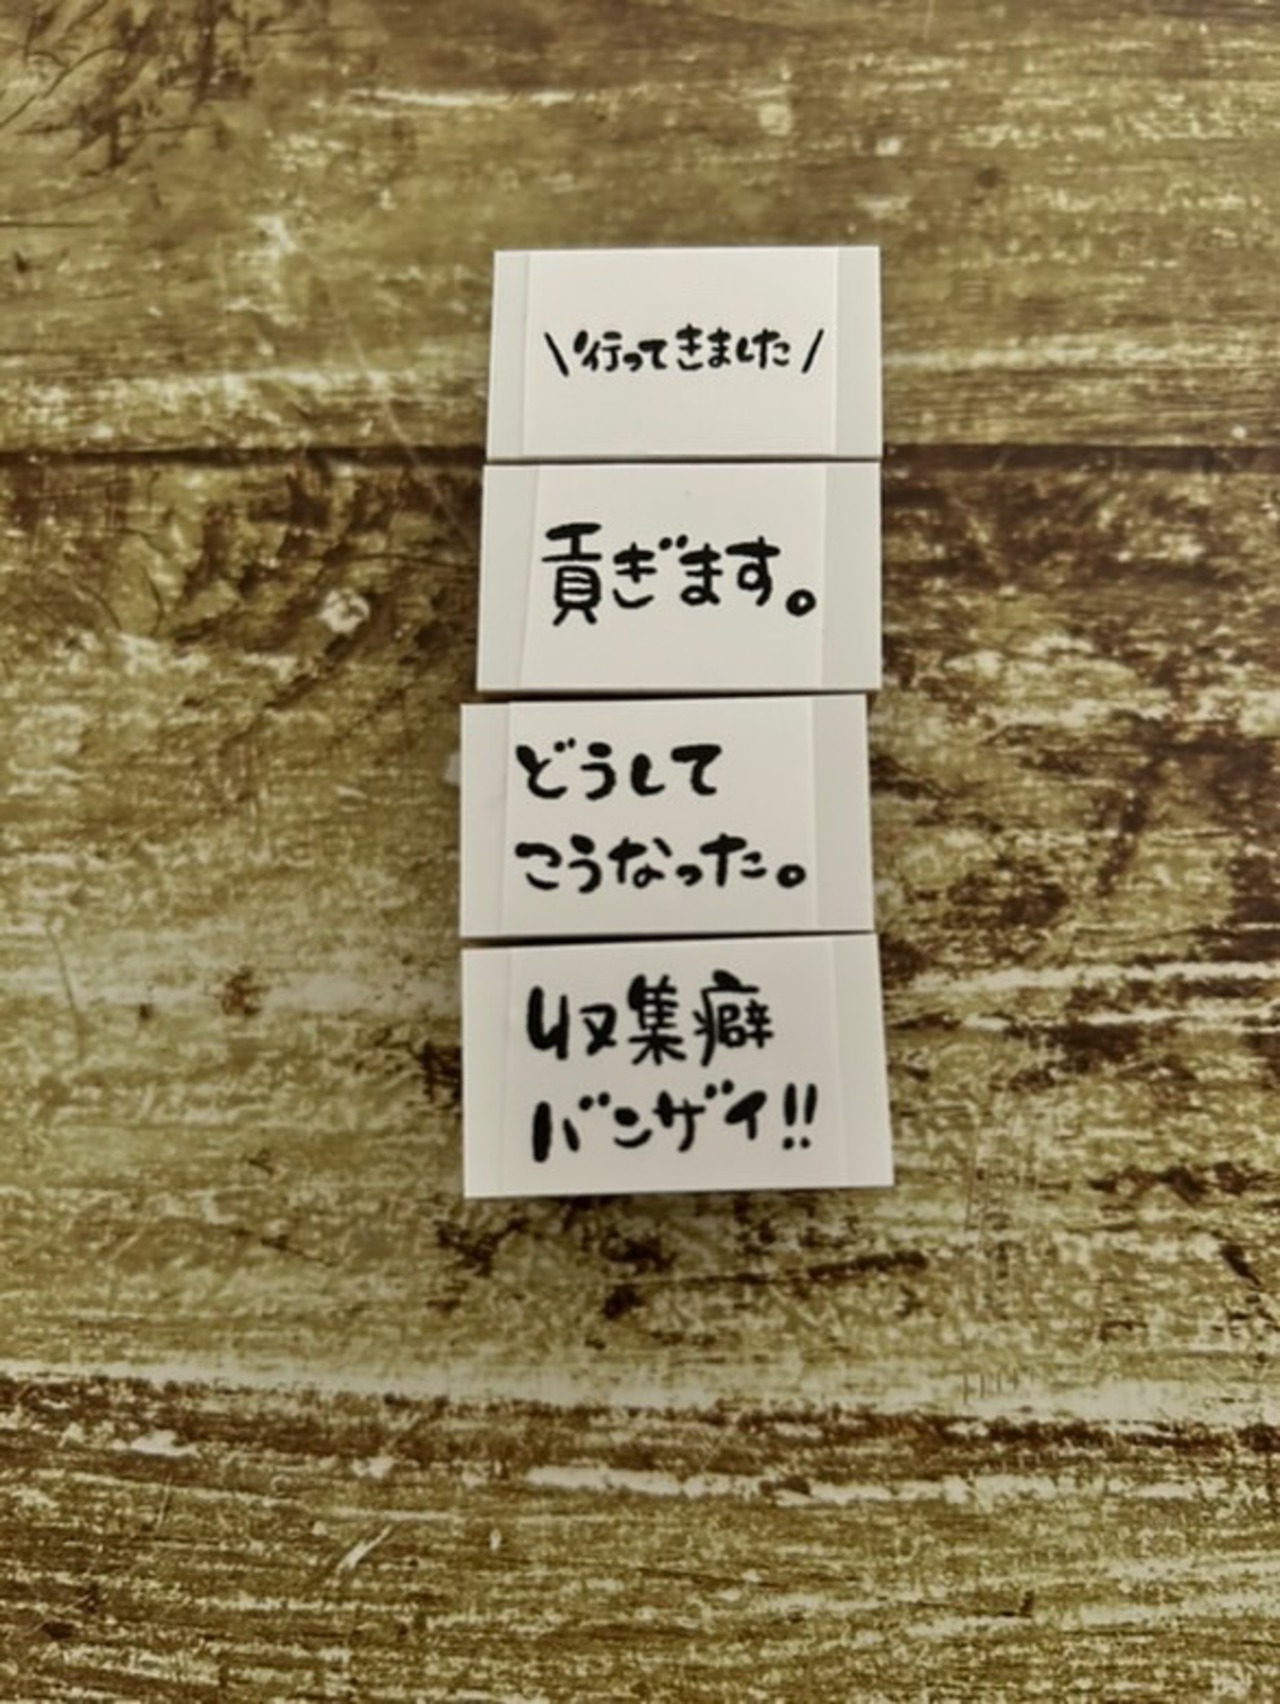 \行ってきました/
貢ぎます。
どうして
こうなった。
収集癖
バンザイ!!